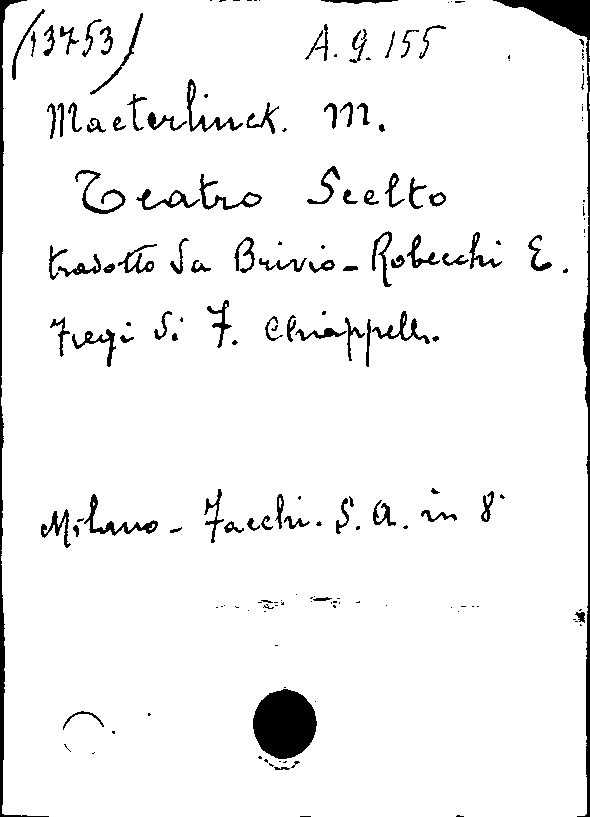 (13753) A. 9. 155
Maeterlinck. M.
Teatro Scelto
tradotto da Brivio - Robecchi E.
Fregi di F. Chiappelli.
Milano - Facchi. S. A. in 8°